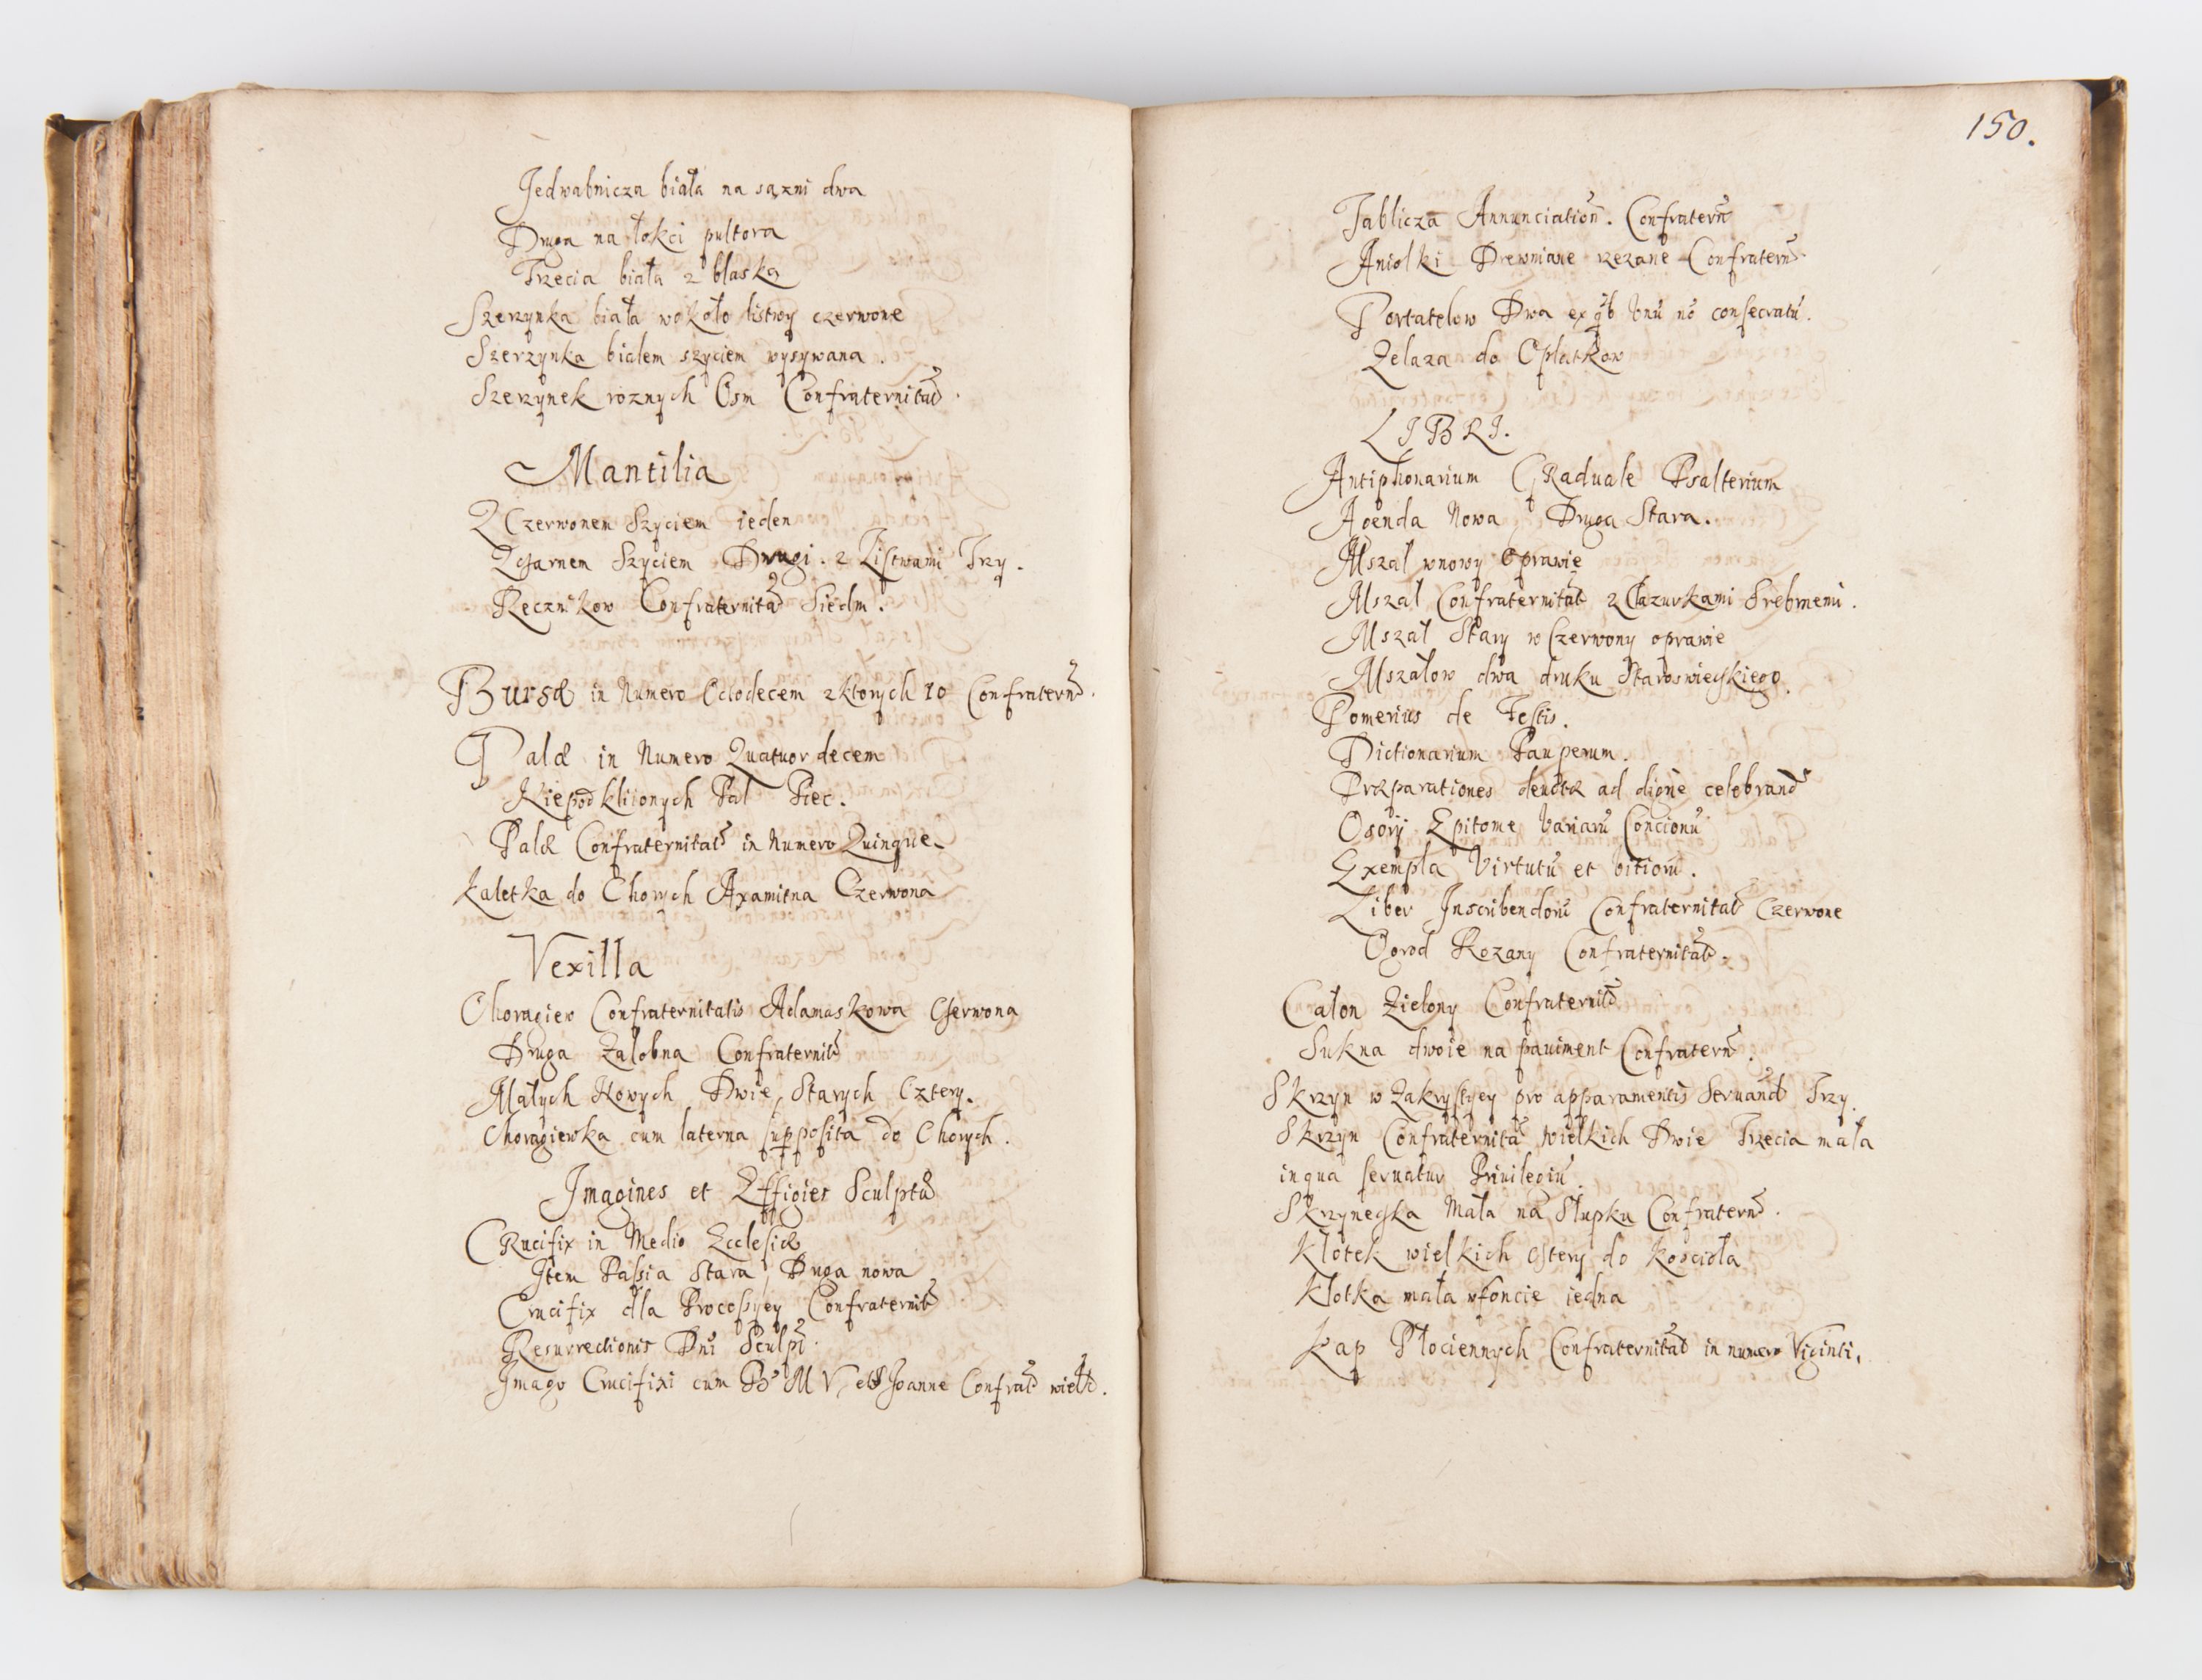 Jedwabnicza biała na sązni dwa
Druga na łokci pultora
Trzecia biała z blaską
Szerzynka biała wokoło listwy czerwone
Szerzynka białem szyciem wysywana.
Szerzynek roznych Osm Confraternitat̃.
Mantilia
Z Czerwonem Szyciem ieden
Z czarnem Szyciem Drugi. z Listwami Trzy.
Ręcznikow Confraternitat̃ Siedm.
Bursæ in Numero Octodecem z ktorych 10 Confraterñ.
Palæ in Numero Quatuordecem
Niepodkliionych Pal Piec.
Palæ Confraternitat̃ in Numero Quinque
Kaletka do Chorych Axamitna Czerwona
Vexilla
Choragiew Confraternitatis Adamaskowa Czerwona
Druga Załobna Confraternit̃
Małych Nowych Dwie, Starych Cztery.
Choragiewka cum laterna supposita do Chorych.
Imagines et Effigies Sculptæ
CRucifix in Medio Ecclesiæ
Item Passia Stara, Druga nowa
Crucifix dla Processyey Confraternit̃
Resurrectionis Dñi Sculpt̃.
Imago Crucifixi cum B. M V, et S Joanne Confrat̃
150.
Tablicza Annunciation̄. Confratern̄
Aniolki Drewniane rezane Confratern̄
Portatelow Dwa ex q̃b Vnū nō consecratū.
Zelaza do Opłatkow
LIBRI.
Antiphonarium GRaduale Psalterium
Agenda Nowa Druga Stara.
Mszal wnowy oprawie
Mszał Confraternitat̃ z Clazurkami Srebrnemi.
Mszał Stary w Czerwony oprawie
Mszałow dwa druku Staroswieckiego.
Pomerius de Festis.
Dictionarium Pauperum.
Præparationes deuotæ ad digne celebrand̃
Osorij Epitome Variarū Concionū
Exempla Virtutū et vitiorū.
Liber Inscribendorū Confraternitat̃ Czerwone
Ogrod Rozany Confraternitat̃.
Całon Zielony Confraternit̃
Sukna dwoie na pauiment Confratern̄.
Skrzyn w Zakrystyey pro apparamentis Seruand̃ Trzy.
Skrzyn Confraternitat̃ wielkich Dwie Trzecia mała
in qua seruatur Priuilegiū.
Skrzyneczka Mała na Słupku Confratern̄.
Kłotek wielkich cztery do koscioła
Kłotka mała wfoncie iedna
Kap Płociennych Confraternitat̃ in numero Viginti.